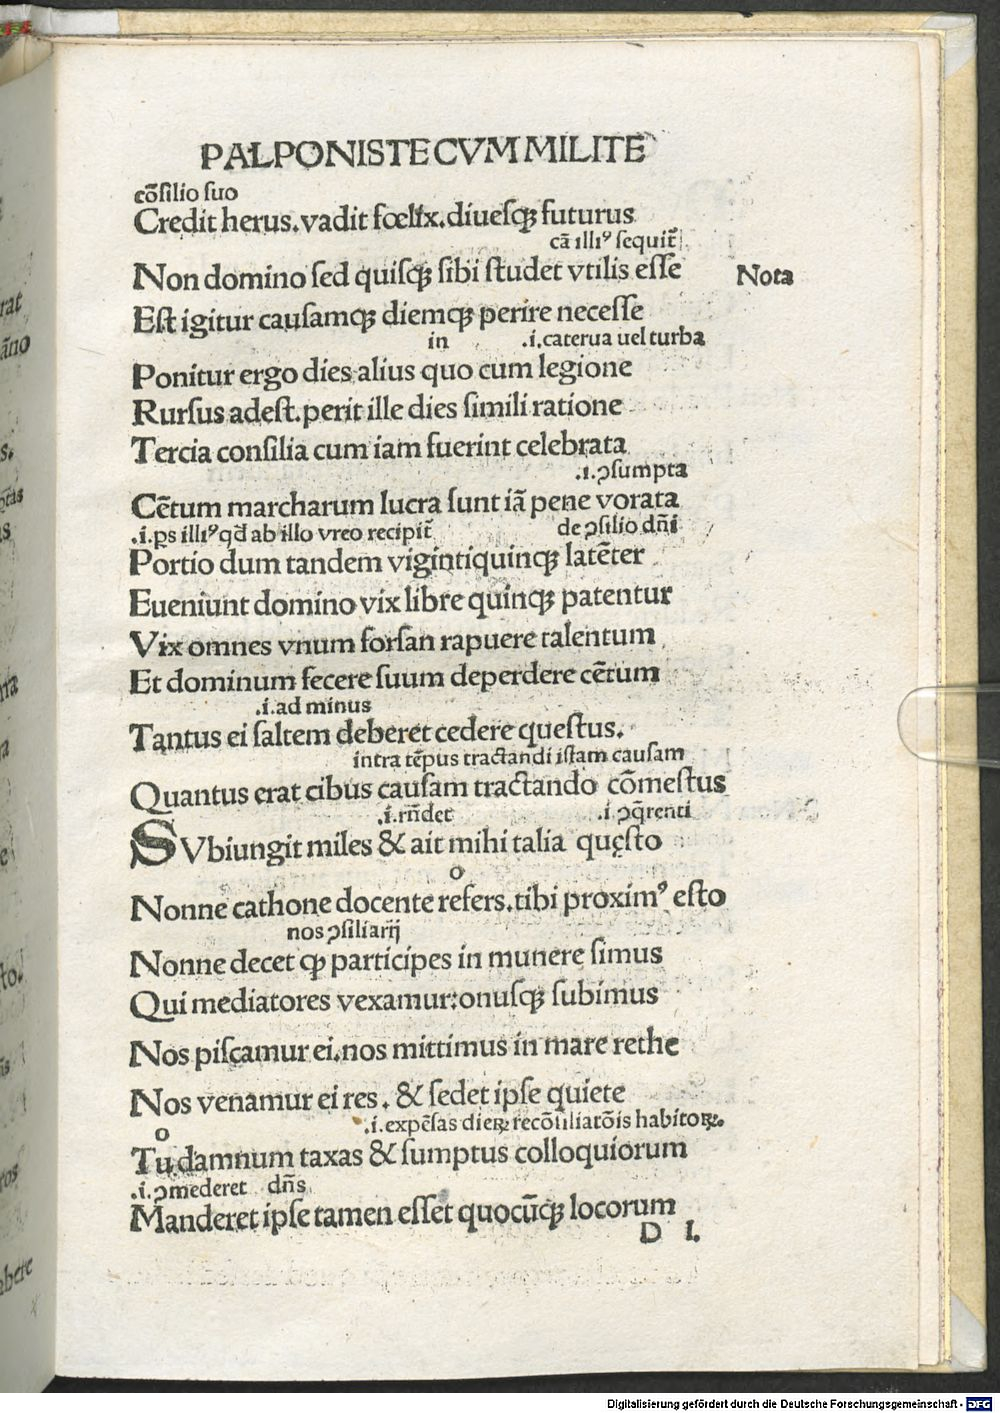 PALPONISTE CVM MILITE
cõsilio suo
Credit herus. vadit fœlix. diuesqꝫ futurus
cã illiꝰ sequit᷑
Non domino sed quisqꝫ sibi studet vtilis esse
Nota
Est igitur causamqꝫ diemqꝫ perire necesse
in .i. caterua uel turba
Ponitur ergo dies alius quo cum legione
Rursus adest. perit ille dies simili ratione
Tercia consilia cum iam fuerint celebrata
.i. ꝯsumpta
Cẽtum marcharum lucra sunt iã pene vorata
.i. ꝑs illiꝰ qđ ab illo vreo recipit᷑ de ꝯsilio dñi
Portio dum tandem vigintiquinqꝫ latẽter
Eueniunt domino vix libre quinqꝫ patentur
Vix omnes vnum forsan rapuere talentum
Et dominum fecere suum deperdere cẽtum
.i. ad minus
Tantus ei saltem deberet cedere questus.
intra tẽpus tractandi istam causam
Quantus erat cibus causam tractando cõmestus
.i. rñdet .i. ꝯq̃renti
SVbiungit miles & ait mihi talia quęsto
o
Nonne cathone docente refers. tibi proximꝰ esto
nos ꝯsiliarij
Nonne decet ꝙ participes in munere simus
Qui mediatores vexamur: onusqꝫ subimus
Nos piscamur ei. nos mittimus in mare rethe
Nos venamur ei res. & sedet ipse quiete
.i. expẽsas dieꝝ recõsiliatõis habitoꝝ.
o
Tu damnum taxas & sumptus colloquiorum
.i. ꝯmederet dñs
Manderet ipse tamen esset quocũqꝫ locorum
D I.
rat
ãno
s.
to.
ros
bere
Digitalisierung gefördert durch die Deutsche Forschungsgemeinschaft - DFG